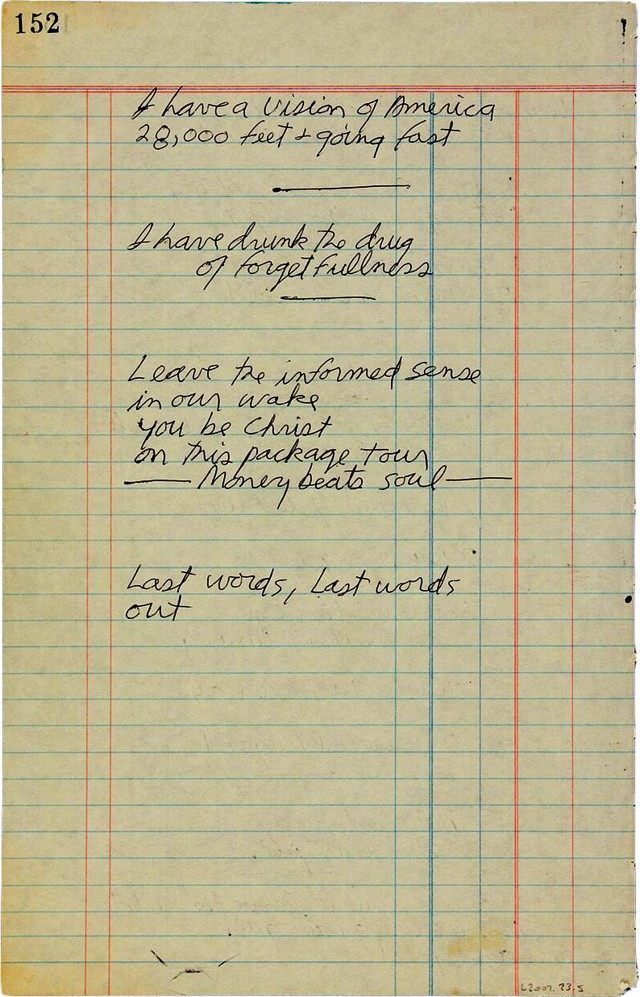 152
I have a vision of America
28,000 feet & going fast
I have drunk the drug
of forgetfullness
Leave the informed sense
in our wake
you be Christ
on this package tour
— Money beats soul —
Last words, Last words
out
L2007.23.5